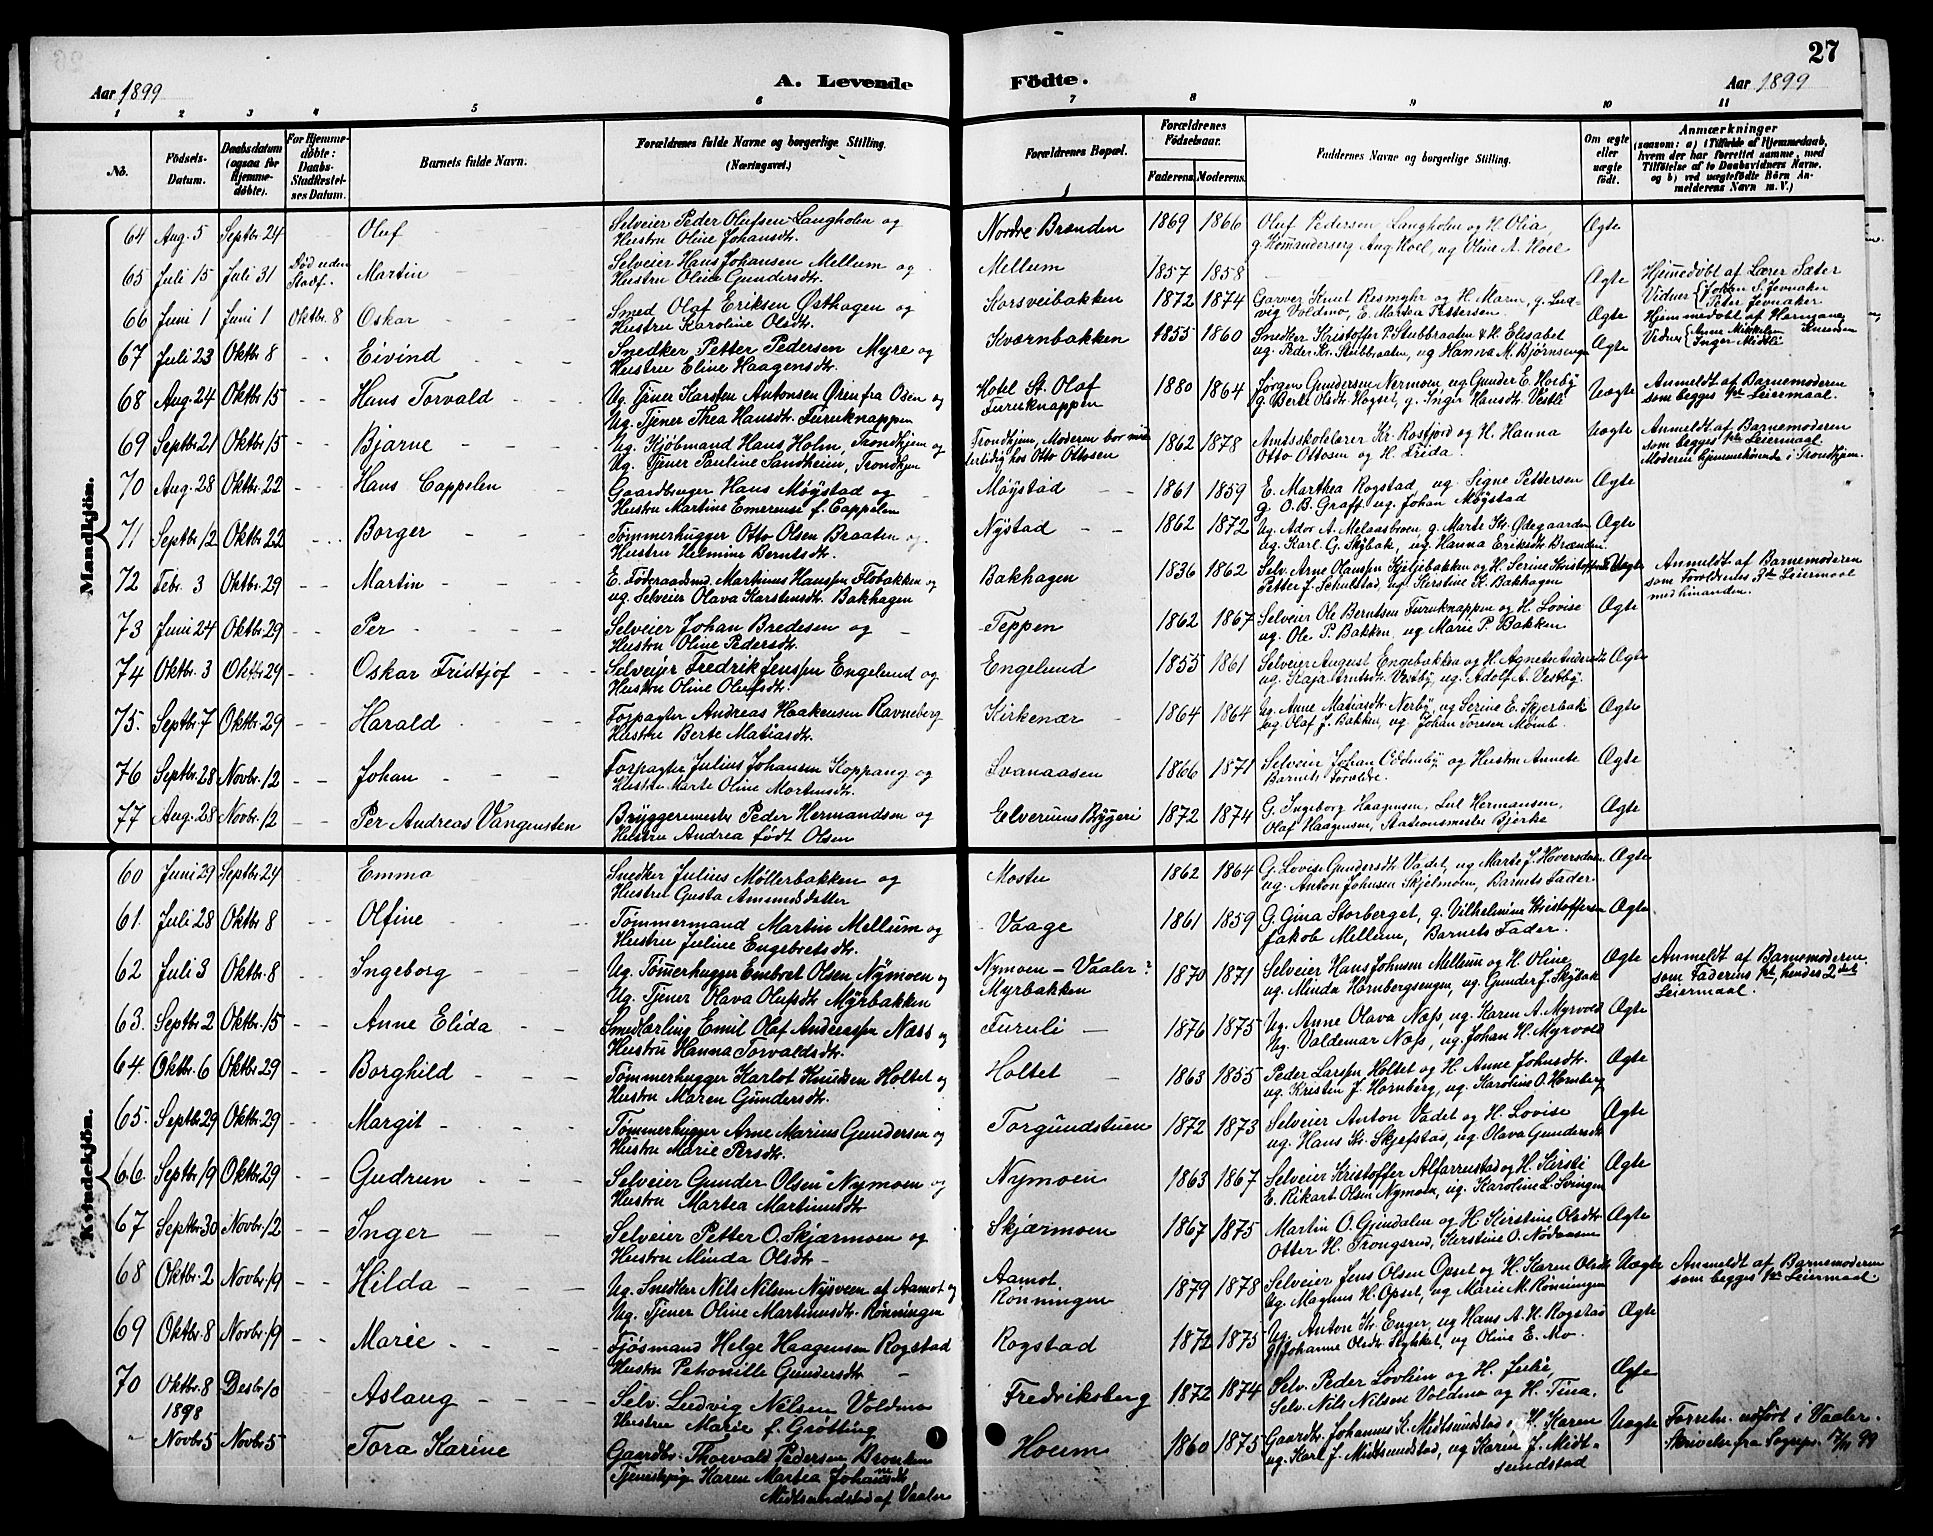 27
Aar 1899 A. Levende Födte. Aar 1899
1 2 3 4 5 6 7 8 9 10 11
No. Födsels-Datum. Daabsdatum (ogsaa for Hjemmedöbte). For Hjemmedöbte: Daabs-Stadfæstelses Datum. Barnets fulde Navn. Forældrenes fulde Navne og borgerlige Stilling. (Næringsvei.) Forældrenes Bopæl. Forældrenes Födselsaar. Faderens. Moderens. Faddernes Navne og borgerlige Stilling. Om ægte eller uægte födt. Anmærkninger (saasom: a) i Tilfælde af Hjemmedaab, hvem der har forrettet samme, med Tilföielse af to Daabsvidners Navne, og b) ved uægtefödte Börn Anmelderens Navn m. V.)
Mandkjön.
64 Aug. 5 Septbr. 24 Oluf Selveier Peder Olufsen Langholen og Nordre Brænden 1869 1866 Oluf Pedersen Langholen og H. Olia, Ægte
Hustru Oline Johansdtr. g. Komandersg. Aug. Hoel, ug Oline A. Hoel
65 Juli 15 Juli 31 Död uden Stadf. Martin Selveier Hans Johansen Mellum og Mellum 1857 1858 Ægte Hjemmedöbt af Lærer Sæter
Hustru Olina Gundersdtr. Vidner Johan P. Jevnaker Peter Jevnaker
66 Juni 1 Juni 1 Oktbr. 8 Oskar Smed Olaf Eriksen Østhagen og Korsveibakken 1872 1874 Garver Knut Resmyhr og H. Maren, g. Lud- Ægte Hjemmedöbt af Hermana Knudsen
Hustru Karoline Olsdtr. vig Voldmo, E. Marthea Pettersen Vidner Anne Mikkelsen Inger Midtli
67 Juli 23 Oktbr. 8 Eivind Snedker Petter Pedersen Myre og Kværnbakken 1855 1860 Snedker Kristoffer P. Stubbraaten & H. Elisabet Ægte
Hustru Eline Haagensdtr. ug. Peder Kr. Stubbraaten, ug Hanna M. Bjørnsengen
68 Aug. 24 Oktbr. 15 Hans Torvald Ug. Tjener Karsten Antonsen Øren fra Osen og Hotel St. Olaf 1880 1864 Jørgen Gundersen Nermoen, ug Gunder E. Hoeby Uægte Anmeldt af Barnemoderen
Ug. Tjener Thea Hansdtr. Furuknappen Furuknappen g. Berte Olsdtr. Hogset, g. Inger Hansdtr. Vestli som begges 1ste Leiermaal.
69 Septbr. 21 Oktbr. 15 Bjarne Ug. Kjöbmand Hans Holm, Trondhjem og Trondhjem, Moderen bor mid- 1862 1878 Amtsskolelærer Kr. Rostfjord og H. Hanna Uægte Anmeldt af Barnemoderen
Ug. Tjener Pauline Sandheim, Trondhjem lertidig hos Otto Ottosen Otto Ottosen og H. Frida. som begges 1ste Leiermaal. Moderen hjemmehörende i Trondhjem.
70 Aug. 28 Oktbr. 22 Hans Cappelen Gaardbruger Hans Møystad og Møystad 1861 1859 E. Marthea Rogstad, ug Signe Pettersen Ægte
Hustru Martine Emerense f. Cappelen g. O. B. Graff, ug. Johan Møystad
71 Septbr. 12 Oktbr. 22 Borger Tømmerhugger Otto Olsen Braaten og Nystad 1862 1872 Ug. Ador A. Melaasbroen, g. Marte Kr. Ødegaarden Ægte
Hustru Helmine Berntsdtr. ug. Karl G. Skybak, ug Hanna Eriksdtr. Brænden
72 Febr. 3 Oktbr. 29 Martin E. Föderaadsmd. Martinus Hanssen Flobakken og Bakhagen 1836 1862 Selv. Arne Olaussen Kjeljebakken og H. Serine Kristoffersdtr. Uægte Anmeldt af Barnemoderen
ug. Selveier Olava Karstensdtr. Bakhagen Petter J. Schulstad, ug Kerstine K. Bakhagen som Forældrenes 3die Leiermaal med hinanden.
73 Juni 24 Oktbr. 29 Per Selveier Johan Bredesen og Teppen 1862 1867 Selveier Ole Berntsen Furuknappen og H. Lovise Ægte
Hustru Oline Pedersdtr. ug. Ole P. Bakken, ug Marie P. Bakken
74 Oktbr. 3 Oktbr. 29 Oskar Fridtjof Selveier Fredrik Jenssen Engelund og Engelund 1855 1861 Selveier August Engebakken og H. Agnete Andersdtr. Ægte
Hustru Oline Olufsdtr. ug. Kaja Arntsdtr. Vestby, ug. Adolf A. Vestby.
75. Septbr. 7 Oktbr. 29 Harald Forpagter Andreas Haakensen Ravneberg Kirkenær 1864 1864 Ug. Anne Matiasdtr. Nerby, ug Serine E. Skjerbak Ægte
Hustru Berte Matiasdtr. ug Olaf J. Bakken, ug. Johan Toresen Momb.
76 Septbr. 28 Novbr. 12 Johan Forpagter Julius Johansen Koppang og Svanaasen 1866 1871 Selveier Johan Oddenby og Hustru Annete Ægte
Hustru Marte Oline Mortensdtr. Barnets Forældre.
77 Aug. 28 Novbr. 12 Per Andreas Vangensten Bryggermester Peder Hermandsen og Elverums Bryggeri 1872 1874 G. Ingeborg Haagensen, Lul Hermansen, Ægte
Hustru Andrea födt Olsen Olaf Haagensen, Stationsmester Bjerke
Kvindekjön.
60 Juni 29 Septbr. 24 Emma Snedker Julius Møllerbakken og Mostu 1862 1864 G. Lovise Gundersdtr. Vadet, ug Marte J. Hoversdalen Ægte
Hustru Gusta Amundsdatter ug. Anton Johnsen Skjelmoen, Barnets Fader.
61. Juli 28 Oktbr. 8 Olfine Tømmermand Martin Mellum og Vaage 1861 1859 G. Gina Storberget, g. Vilhelmine Kristoffersen Ægte
Hustru Juline Engebretsdtr. Jakob Mellum, Barnets Fader.
62 Juli 3 Oktbr. 8 Ingeborg Ug. Tømmerhugger Embret Olsen Nymoen og Nymoen - Vaaler? 1870 1871 Selveier Hans Johnsen Mellum og H. Oline Ægte Anmeldt af Barnemoderen
Ug. Tjener Olava Olufsdtr. Myrbakken Myrbakken ug. Minda Hornbergsengen, ug. Gunder J. Skybak som Faderens 1ste, hendes 2det Leiermaal.
63. Septbr. 2 Oktbr. 15 Anne Elida Smedkarling Emil Olaf Anderssen Næss og Furuli 1876 1875 Ug. Anne Olava Næss, ug. Karen A. Myrvold Ægte
Hustru Hanna Torvaldsdtr. Ug. Valdemar Næss, ug Johan H. Myrvold
64. Oktbr. 6 Oktbr. 29 Borghild Tømmerhugger Karlot Knudsen Holtet og Holtet 1863 1855 Peder Larssen Holtet og H. Anne Johnsdtr. Ægte
Hustru Maren Gundersdtr. ug. Kristen J. Hornberg, ug. Karoline O. Hornberg
65. Septbr. 29 Oktbr. 29 Margit Tømmerhugger Arne Marius Gundersen og Torgundstuen 1872 1873 Selveier Anton Vadet og H. Lovise Ægte
Hustru Marie Persdtr. ug. Hans Kr. Skjefstad, ug. Olava Gundersdtr.
66. Septbr. 19 Oktbr. 29 Gudrun Selveier Gunder Olsen Nymoen og Nymoen 1863 1867 Selveier Kristoffer Alfarrustad og H. Kirsti Ægte
Hustru Martea Martinusdtr. E. Rikart Olsen Nymoen, ug. Karoline L. Svingen
67 Septbr. 30 Novbr. 12 Inger Selveier Petter O. Skjærmoen og Skjærmoen 1867 1875 Martin O. Gjendalen og H. Kirstine Olsdtr. Ægte
Hustru Minda Olsdtr. Otter H. Trongsrud, Kerstine O. Nødaasen
68 Oktbr. 2 Novbr. 19 Hilda Ug. Snedker Nils Nilsen Nysveen af Aamot og Aamot 1879 1878 Selveier Jens Olsen Opset og H. Karen Olsdtr. Uægte Anmeldt af Barnemoderen
Ug. Tjener Oline Martinusdtr. Rønningen Rønningen Ug. Magnus H. Opset, ug Marie M. Rønningen som begges 1ste Leiermaal.
69 Oktbr. 8 Novbr. 19 Marie Fjösmand Helge Haagensen Rogstad Rogstad 1872 1875 Ug. Anton Kr. Enger, ug Hans A. H. Rogstad Ægte
Hustru Petronille Gundersdtr. G. Johanne Olsdtr. Stykket, ug Oline E. Mo.
70 Oktbr. 8 Desbr. 10 Aslaug Selv. Ludvig Nilsen Voldmo Fredriksberg 1872 1874 Selv. Peder Lövlien og H. Julie, Ægte
1898 Hustru Marie f. Grøtting Selv. Nils Nilsen Voldmo og H. Tina.
" Novbr. 5 Novbr. 5 Tora Karine Gaardbr. Thorvald Pedersen Bronken Hoem 1860 1875 Gaardbr. Johannes K. Midtsundstad, H. Karen Uægte Forretn. udfört i Vaaler.
Tjenestepige Karen Martea Johannesdtr. ug. Karl J. Midtsundstad, ug Karen J. Midt- Skrivelse fra Sognepr. 17/11 99
Midtsundstad af Vaaler sundstad